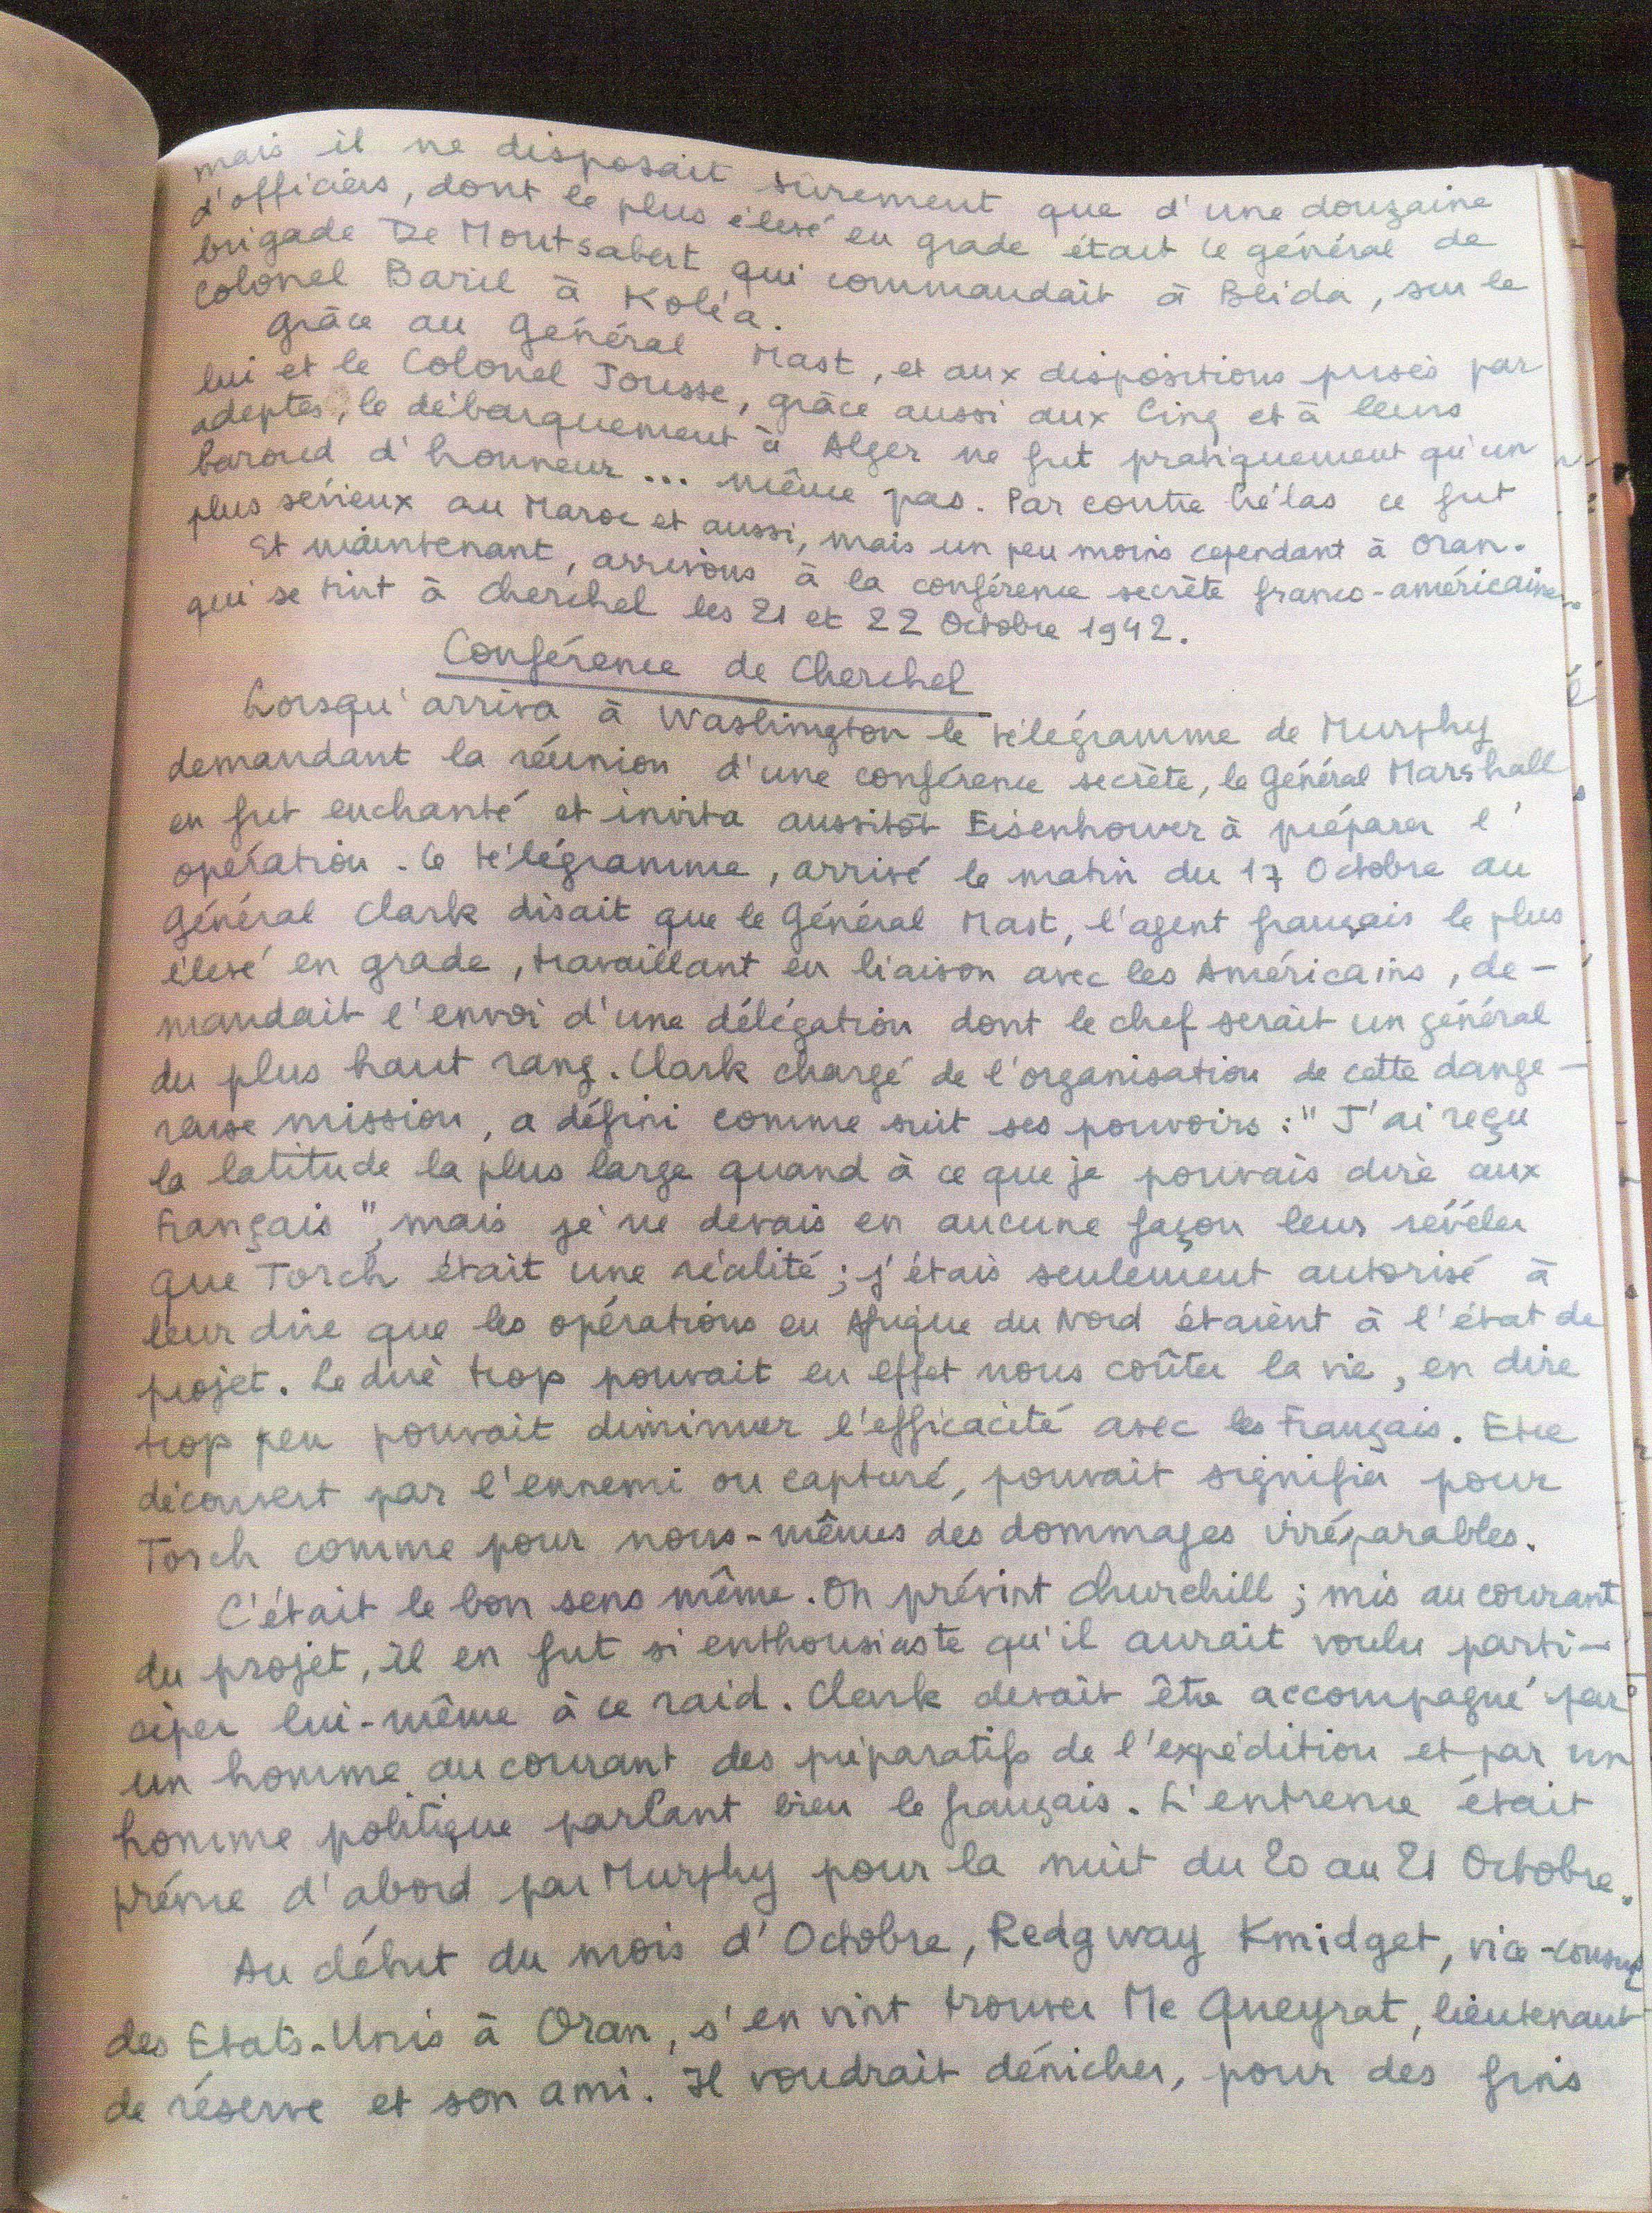 mais il ne disposait sûrement que d'une douzaine
d'officiers, dont le plus élevé en grade était le général de
brigade De Montsabert qui commandait à Blida, sur le
Colonel Baril à Koléa.
Grâce au Général Mast, et aux dispositions prises par
lui et le Colonel Jousse, grâce aussi aux Cinq et à leurs
adeptes, le débarquement à Alger ne fut pratiquement qu'un
baroud d'honneur... même pas. Par contre hélas ce fut
plus sérieux au Maroc et aussi, mais un peu moins cependant à Oran.
Et maintenant, arrivons à la conférence secrète franco-américaine
qui se tint à Cherchel les 21 et 22 Octobre 1942.
Conférence de Cherchel
Lorsqu'arriva à Washington le télégramme de Murphy
demandant la réunion d'une conférence secrète, le Général Marshall
en fut enchanté et invita aussitôt Eisenhower à préparer l'
opération. Le télégramme, arrivé le matin du 17 Octobre au
Général Clark disait que le Général Mast, l'agent français le plus
élevé en grade, travaillant en liaison avec les Américains, de-
mandait l'envoi d'une délégation dont le chef serait un général
du plus haut rang. Clark chargé de l'organisation de cette dange-
reuse mission, a défini comme suit ses pouvoirs : "J'ai reçu
la latitude la plus large quand à ce que je pouvais dire aux
Français", mais je ne devais en aucune façon leur révéler
que Torch était une réalité ; j'étais seulement autorisé à
leur dire que les opérations en Afrique du Nord étaient à l'état de
projet. Le dire trop pouvait en effet nous coûter la vie, en dire
trop peu pouvait diminuer l'efficacité avec les Français. Etre
découvert par l'ennemi ou capturé, pouvait signifier pour
Torch comme pour nous-mêmes des dommages irréparables.
C'était le bon sens même. On prévint Churchill ; mis au courant
du projet, il en fut si enthousiaste qu'il aurait voulu parti-
ciper lui-même à ce raid. Clark devait être accompagné par
un homme au courant des préparatifs de l'expédition et par un
homme politique parlant bien le français. L'entrevue était
prévue d'abord par Murphy pour la nuit du 20 au 21 Octobre.
Au début du mois d'Octobre, Redgway Kmidget, vice-consul
des Etats-Unis à Oran, s'en vint trouver Me Queyrat, lieutenant
de réserve et son ami. Il voudrait dénicher, pour des fins